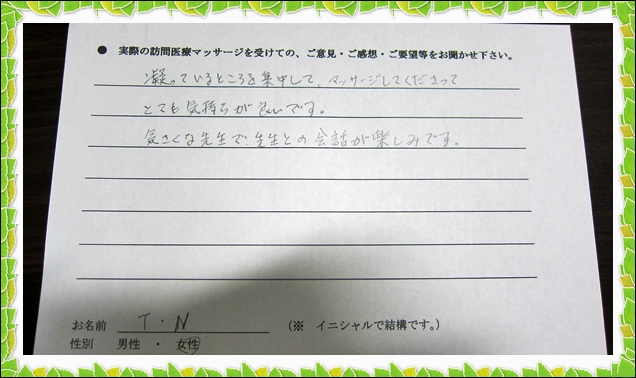 ● 実際の訪問医療マッサージを受けての、ご意見・ご感想・ご要望等をお聞かせ下さい。
凝っているところを集中して、マッサージしてくださって
とても気持ちが良いです。
気さくな先生で、先生との会話が楽しみです。
お名前 T・N (※ イニシャルで結構です。)
性別 男性 ・ 女性